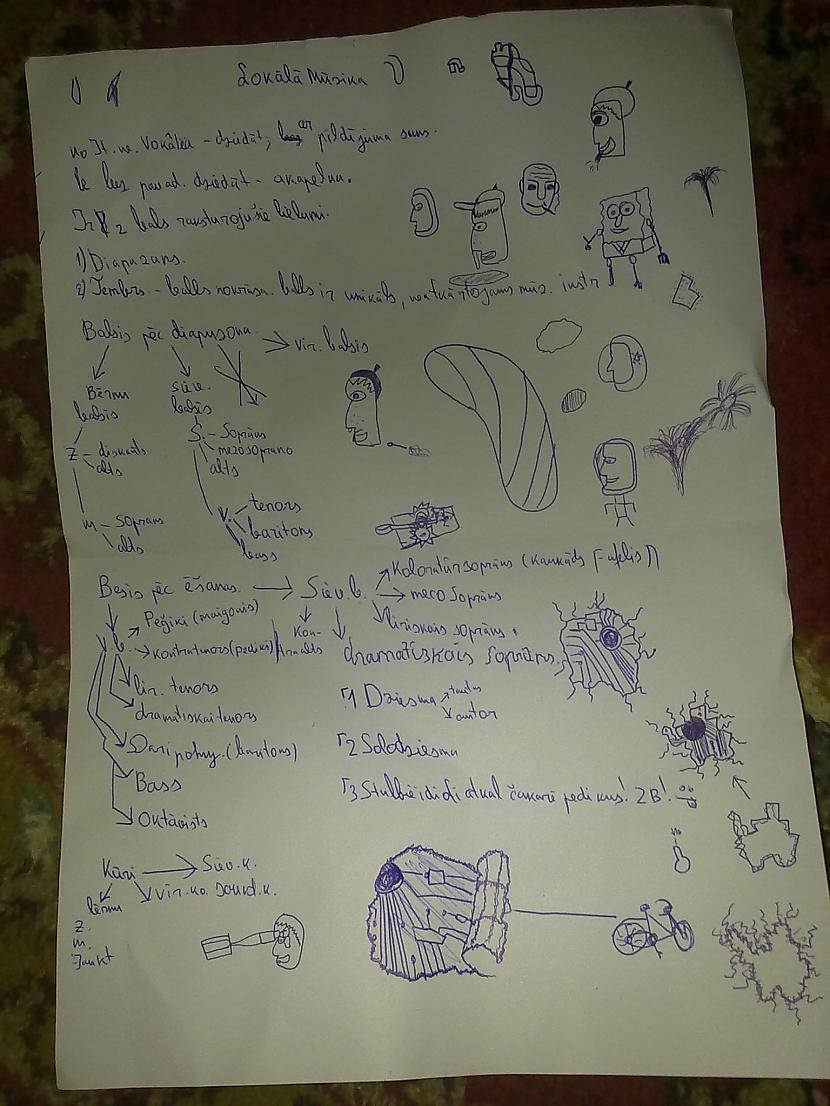 Lokālā Mūsika
no It. v. Vokālča - dziedāt; ar pildījuma suns.
le bez pavad. dziedāt - akapelun.
Ir 2 bals raksturojušie lielumi.
1) Diapazans.
2) Tembrs - balss nokrāsa. balls ir unikāls, neatkārtojams mūs. instr
Balsis pēc diapasona → vir. balsis
Bērnu balsis
siev. balsis
Z - diskants
alts
S. - Soprāns
mezosoprano
alts
m - Soprans
alts
V. tenors
baritons
bass
Besis pēc ēšanas. → Siev. b.
Koloratūrsoprāns (Kaukāds
meco Soprāns
liriskais soprāns.
dramatiskais Soprāns.
Kontralts
V. b.
Pegiķi (maigonis)
kontratenors (pediķi)
lir. tenors
dramatiskai tenors
(baritons)
Bass
Oktāvists
1 Dziesma
tautas
autor
2 Solodziesma
3 Stulbie idioti atkal čakarē pedikus! 2B!
Kāri → Siev. k.
vir. ko. Jaukt. k.
bērnu
z.
m.
Jaukt